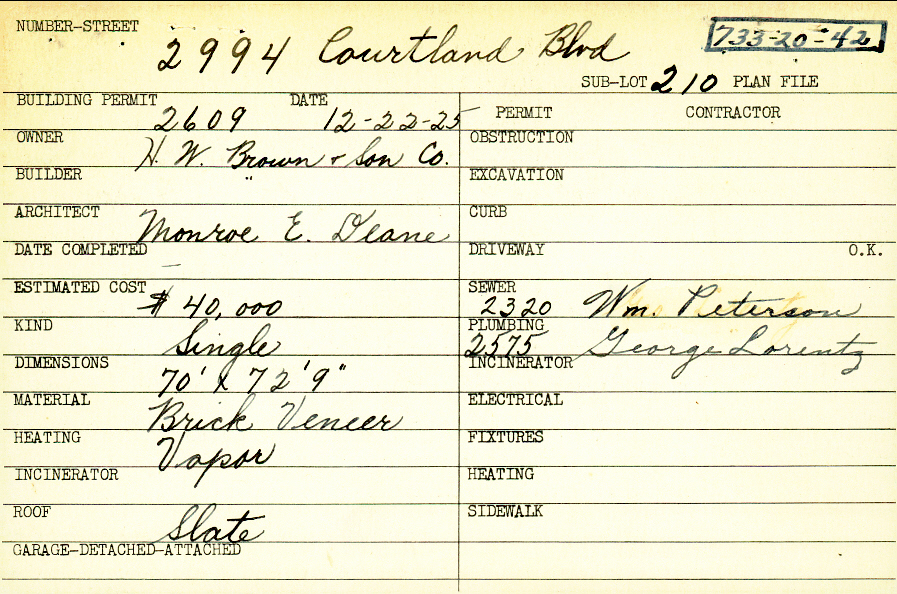 NUMBER-STREET 2994 Courtland Blvd 733-20-42
SUB-LOT 210 PLAN FILE
BUILDING PERMIT 2609 DATE 12-22-25
PERMIT CONTRACTOR
OWNER H. W. Brown + Son Co.
OBSTRUCTION
BUILDER "
EXCAVATION
ARCHITECT Monroe E. Deane
CURB
DATE COMPLETED —
DRIVEWAY O.K.
ESTIMATED COST $ 40,000
SEWER 2320 Wm. Peterson
KIND Single
PLUMBING 2575 George Lorentz
DIMENSIONS 70' x 72' 9"
INCINERATOR
MATERIAL Brick Veneer
ELECTRICAL
HEATING Vapor
FIXTURES
INCINERATOR
HEATING
ROOF Slate
SIDEWALK
GARAGE-DETACHED-ATTACHED